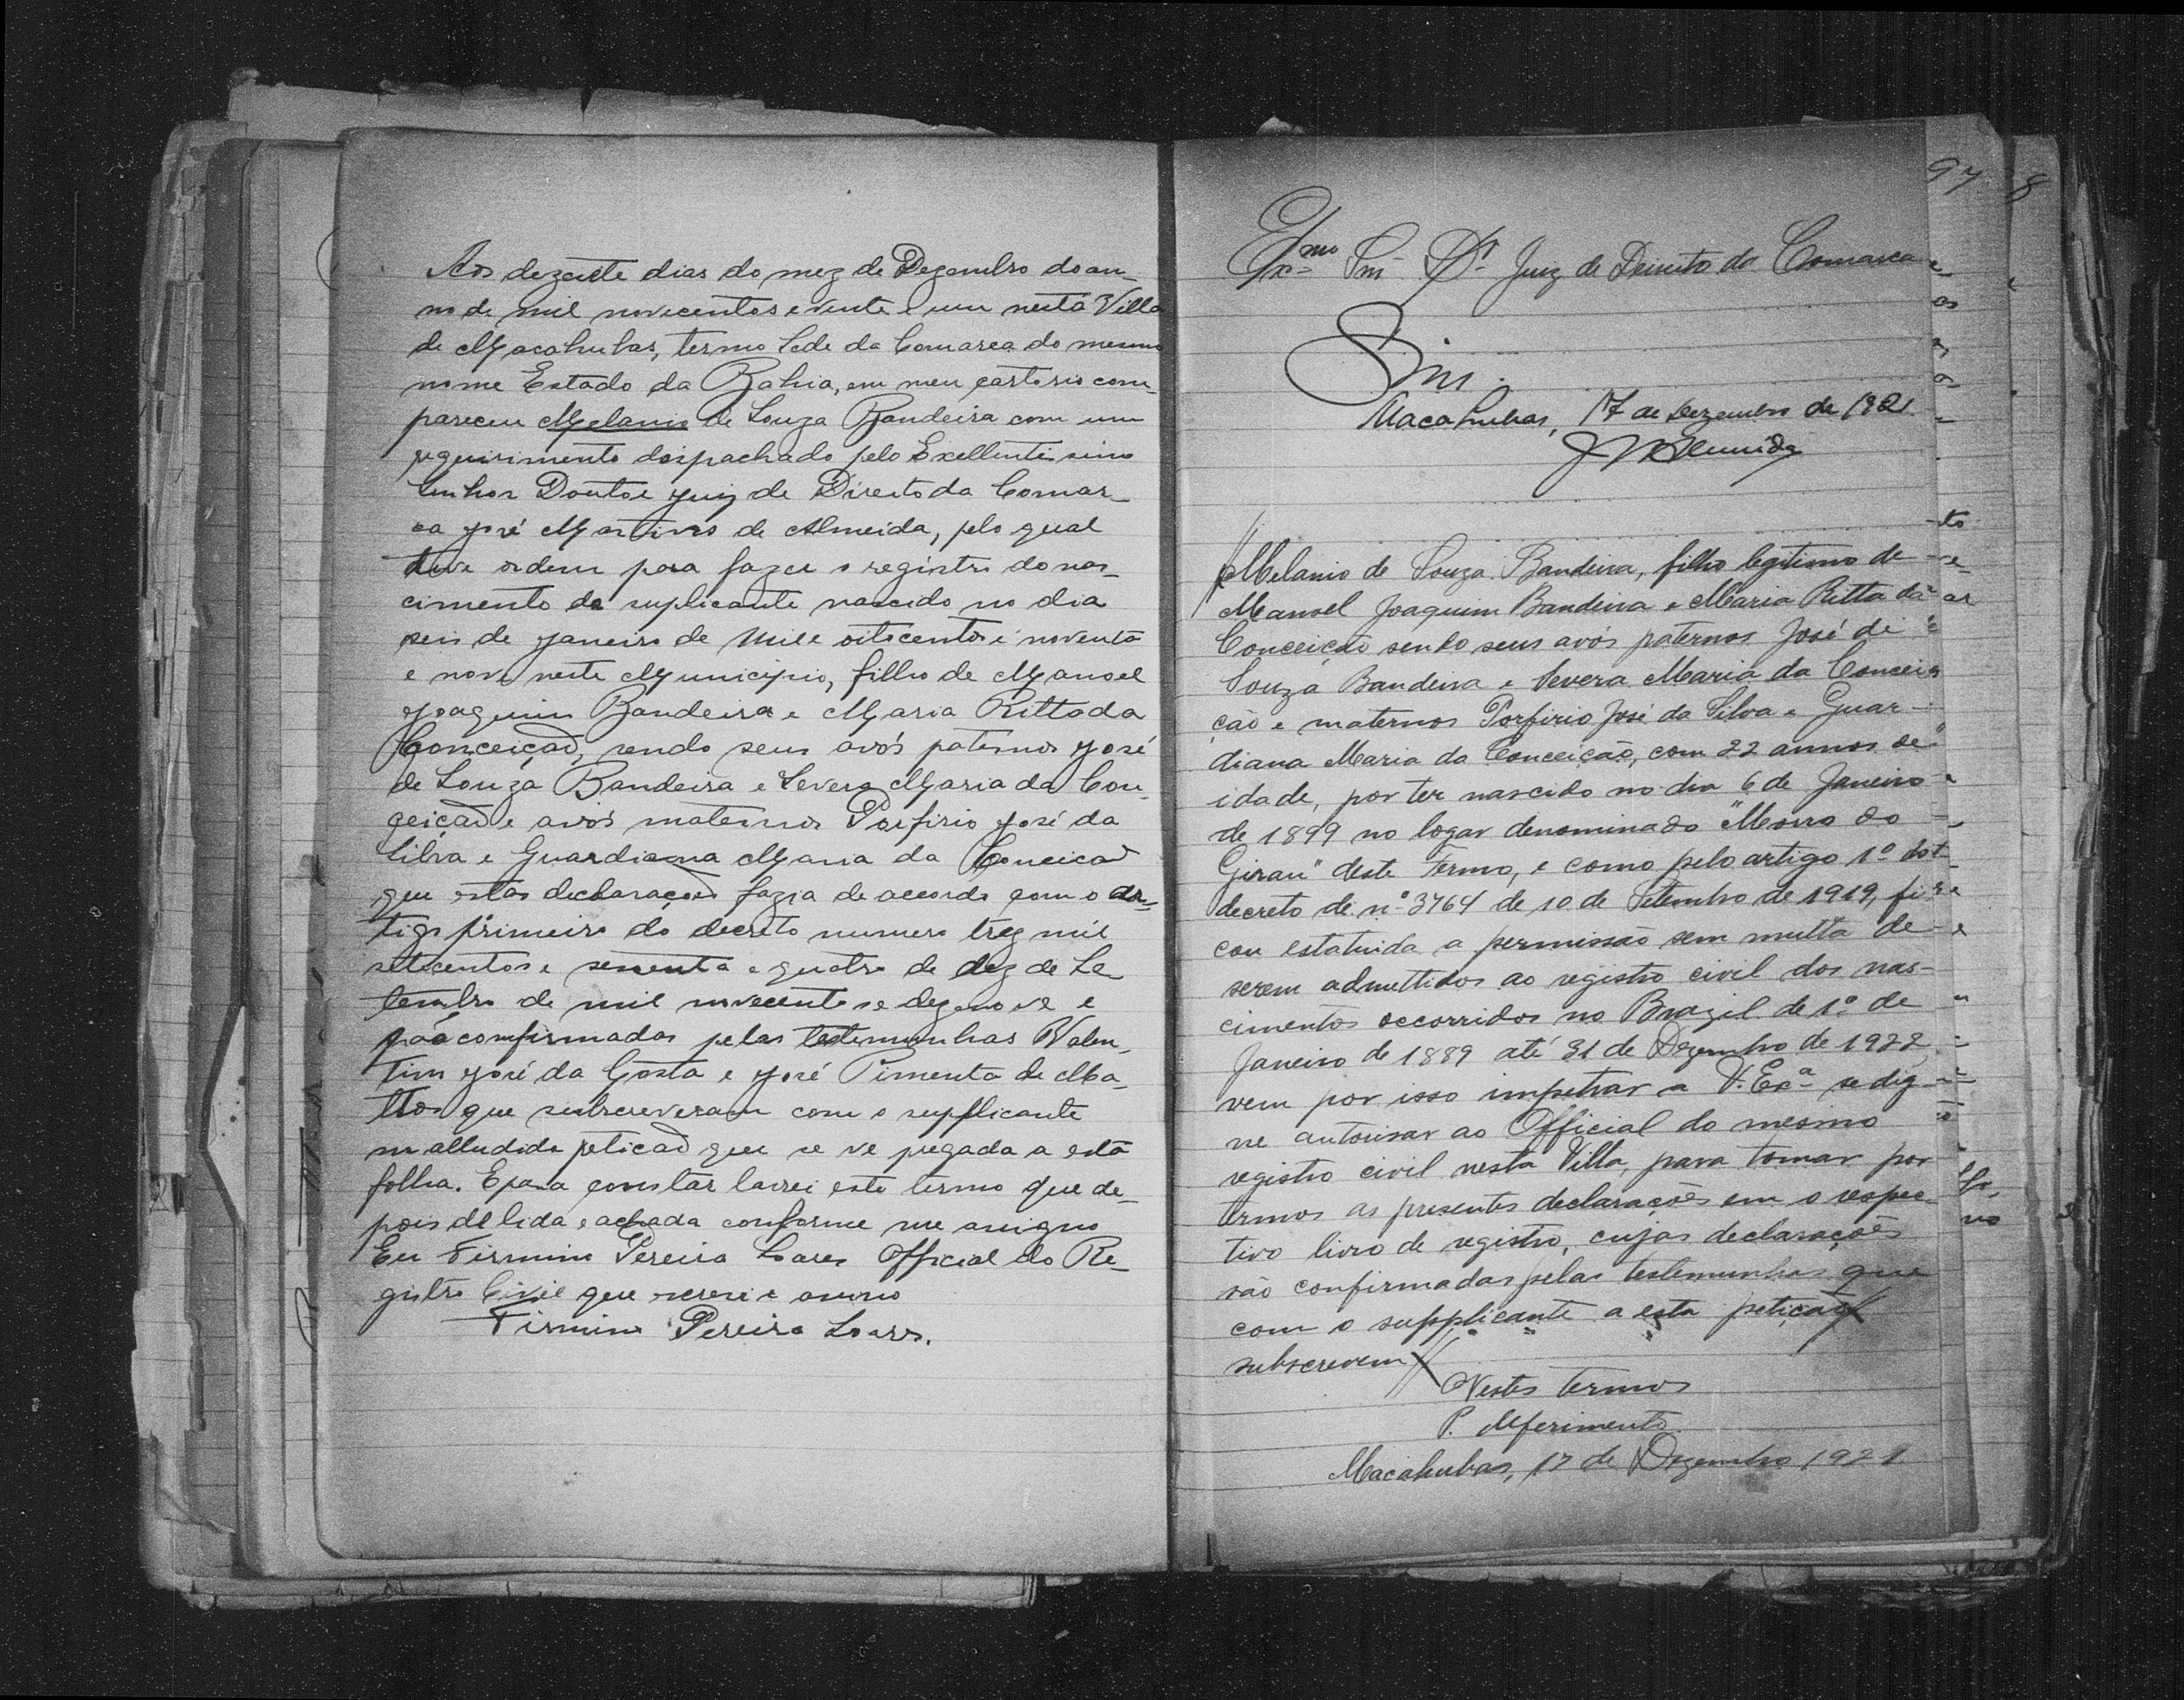 Aos dezesete dias do mez de Dezembro do an-
no de mil novecentos e vinte e um nesta Villa
de Macahubas, termo sede da Comarca do mesmo
nome Estado da Bahia, em meu cartorio com-
pareceu Melanio de Souza Bandeira com um
requirimento despachado pelo Exellentissimo
Senhor Doutor Juiz de Direito da Comar-
ca José Martins de Almeida, pelo qual
tive ordem para fazer o registro do nas-
cimento do suplicante nascido no dia
seis de Janeiro de mil e oitocentos e noventa
e nove neste Municipio, filho de Manoel
Joaquim Bandeira e Maria Ritta da
Conceição, sendo seus avós paternos José
de Souza Bandeira e Severa Maria da Con-
ceição e avós maternos Porfirio José da
Silva e Guardiana Maria da Conceicão
que estas declarações fazia de accordo com o ar-
tigo primeiro do decreto numero trez mil
setecentos e sessenta e quatro de dez de Se-
tembro de mil novecentos e dezenove e
são comfirmadas pelas testemunhas Valen-
tim José da Costa e José Pimenta de Ma-
ttos que subscreveram com o supplicante
na alludida peticão que se ve pegada a esta
folha. E para constar lavrei este termo que de-
pois de lida e achada conforme me assigno
Eu Firmino Pereira Soares Official do Re-
gistro Civil que escrevi e assino
Firmino Pereira Soares.
97 8
Exmo Snr Dr Juiz de Direito da Comarca
Sim.
Macahubas, 17 de Dezembro de 1921
J M Almeida
Melanio de Souza Bandeira, filho legitimo de
Manoel Joaquim Bandeira e Maria Ritta da
Conceição sendo seus avós paternos José de
Souza Bandeira e Severa Maria da Concei-
ção e maternos Porfirio José da Silva e Guar-
diana Maria da Conceição, com 22 annos de
idade, por ter nascido no dia 6 de Janeiro
de 1899 no logar denominado "Morro do
Girau" deste Termo, e como pelo artigo 1º do
decreto de nº 3764 de 10 de Setembro de 1919, fi-
cou estatuida a permissão sem multa de
serem admettidos ao registro civil dos nas-
cimentos occorridos no Brazil de 1º de
Janeiro de 1889 até 31 de Dezembro de 1922,
vem por isso impetrar a V. Exª se dig-
ne autorisar ao Official do mesmo
registro civil nesta Villa, para tomar por
termos as presentes declarações em o respec-
tivo livro de registro, cujas declarações
são confirmadas pelas testemunhas que
com o supplicante a esta petição
subscrevem
Nestes termos
P. deferimento
Macahubas, 17 de Dezembro 1921